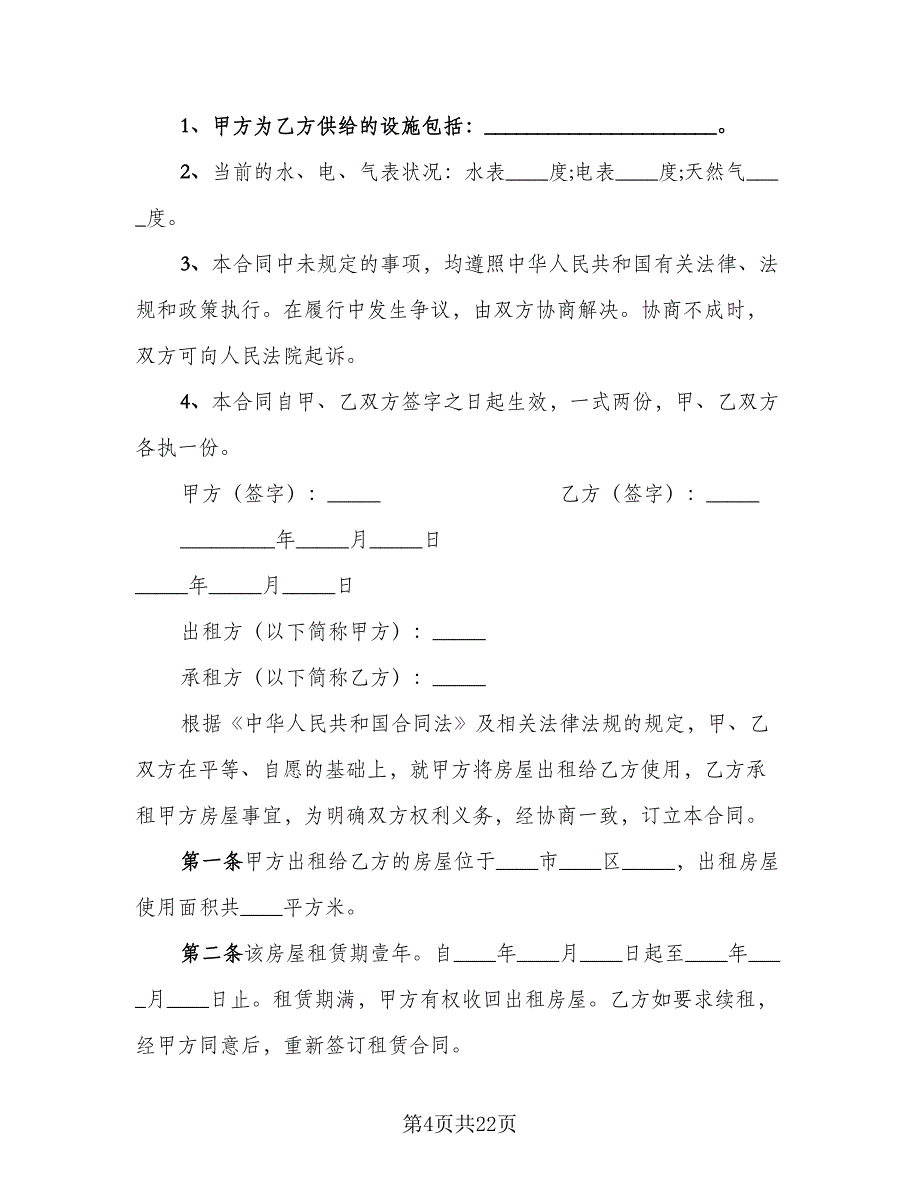 1、甲方为乙方供给的设施包括：______________________。
2、当前的水、电、气表状况：水表____度;电表____度;天然气___
_度。
3、本合同中未规定的事项，均遵照中华人民共和国有关法律、法
规和政策执行。在履行中发生争议，由双方协商解决。协商不成时，
双方可向人民法院起诉。
4、本合同自甲、乙双方签字之日起生效，一式两份，甲、乙双方
各执一份。
甲方（签字）：_____ 乙方（签字）：_____
_________年_____月_____日
_____年_____月_____日
出租方（以下简称甲方）：_____
承租方（以下简称乙方）：_____
根据《中华人民共和国合同法》及相关法律法规的规定，甲、乙
双方在平等、自愿的基础上，就甲方将房屋出租给乙方使用，乙方承
租甲方房屋事宜，为明确双方权利义务，经协商一致，订立本合同。
第一条甲方出租给乙方的房屋位于____市____区_____，出租房屋
使用面积共____平方米。
第二条该房屋租赁期壹年。自____年____月____日起至____年___
_月____日止。租赁期满，甲方有权收回出租房屋。乙方如要求续租，
经甲方同意后，重新签订租赁合同。
第4页共22页